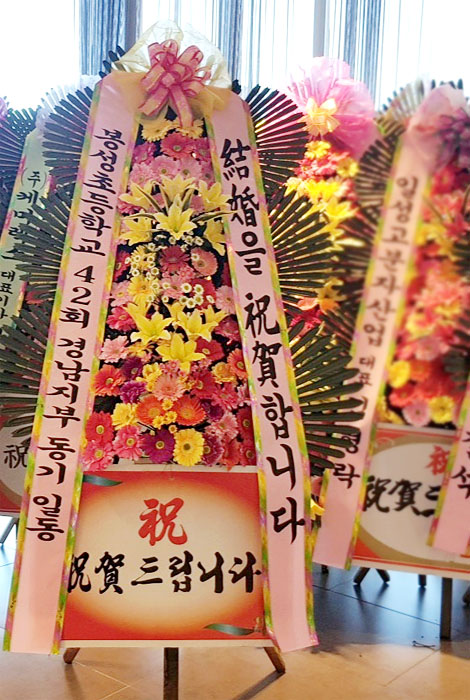 結婚을 祝賀합니다
봉성초등학교 42회 경남지부 동기 일동
祝
祝賀 드립니다
(주)케미
대표이
祝
일성고분자산업 대표
경락
祝
祝賀드